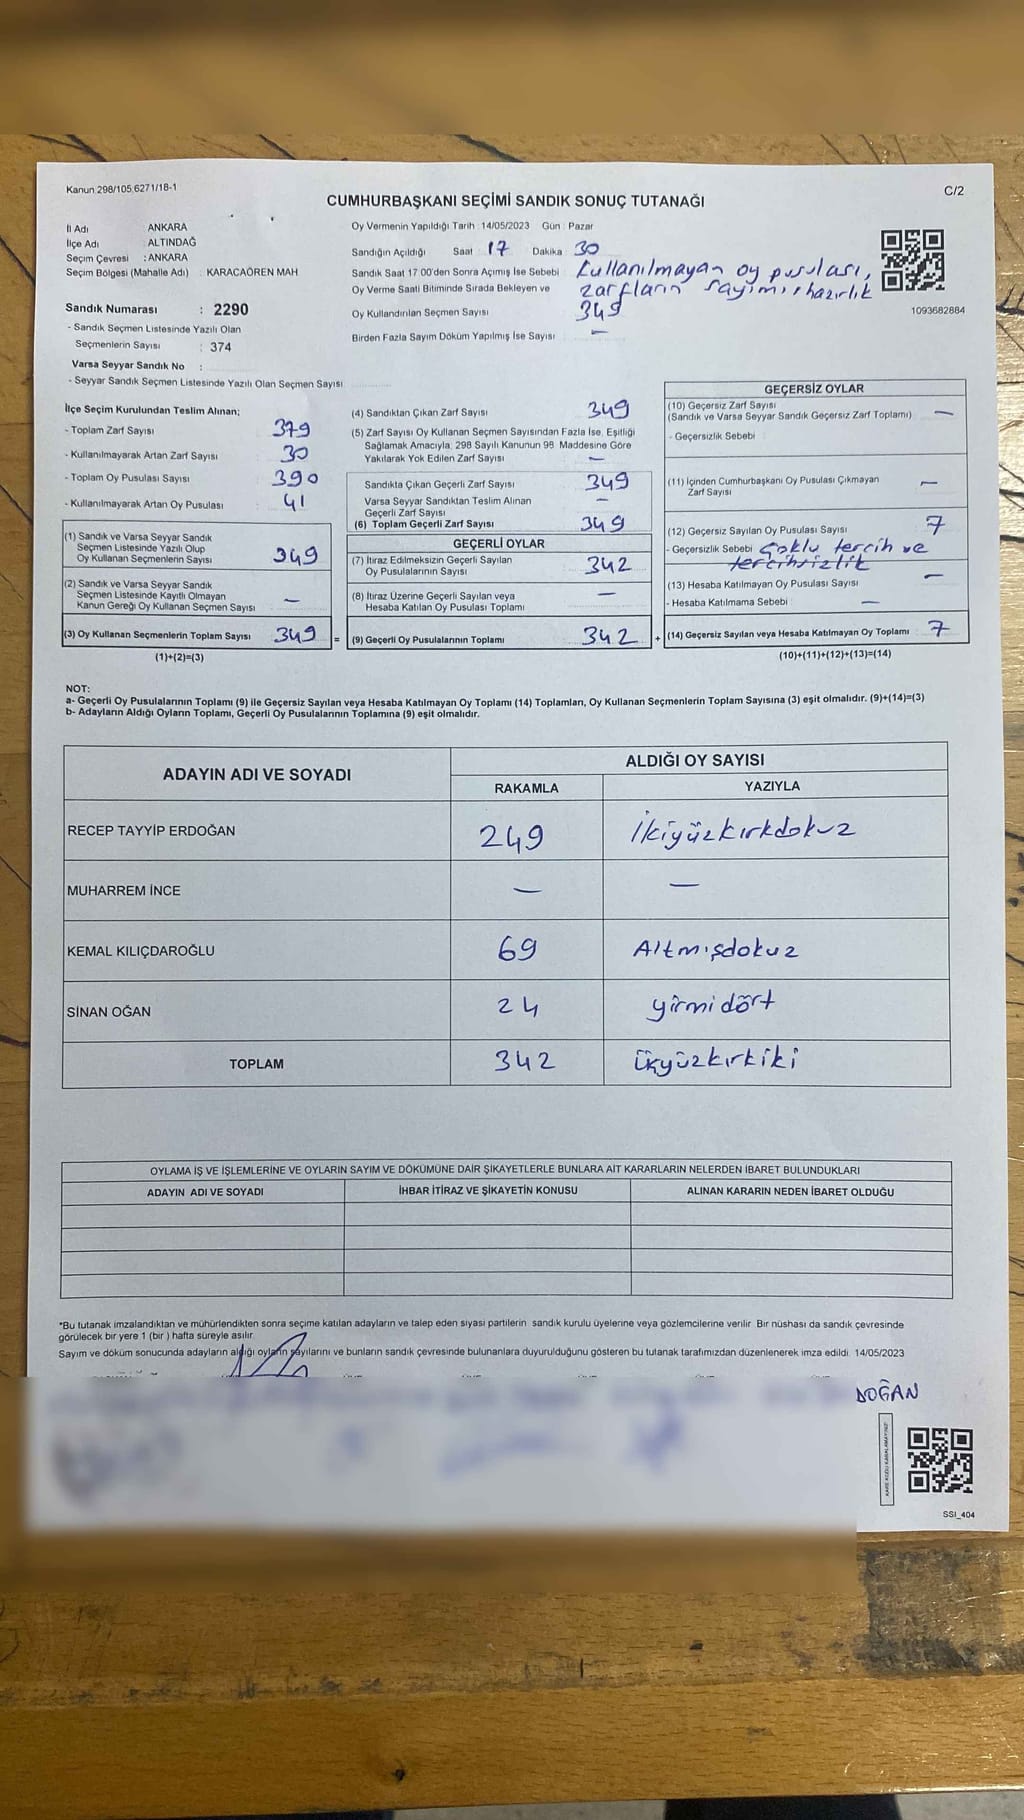 Kanun 298/105,6271/18-1
C/2
CUMHURBAŞKANI SEÇİMİ SANDIK SONUÇ TUTANAĞI
İl Adı ANKARA
İlçe Adı ALTINDAĞ
Seçim Çevresi : ANKARA
Seçim Bölgesi (Mahalle Adı) : KARACAÖREN MAH
Sandık Numarası : 2290
- Sandık Seçmen Listesinde Yazılı Olan
Seçmenlerin Sayısı : 374
Varsa Seyyar Sandık No :
- Seyyar Sandık Seçmen Listesinde Yazılı Olan Seçmen Sayısı
Oy Vermenin Yapıldığı Tarih : 14/05/2023 Gün : Pazar
Sandığın Açıldığı Saat 17 Dakika 30
Sandık Saat 17 00'den Sonra Açımış İse Sebebi kullanılmayan oy pusulası,
Oy Verme Saati Bitiminde Sırada Bekleyen ve zarfların sayımı, hazırlık
Oy Kullandırılan Seçmen Sayısı 349
Birden Fazla Sayım Döküm Yapılmış İse Sayısı —
1093682884
İlçe Seçim Kurulundan Teslim Alınan;
- Toplam Zarf Sayısı 379
- Kullanılmayarak Artan Zarf Sayısı 30
- Toplam Oy Pusulası Sayısı 390
- Kullanılmayarak Artan Oy Pusulası 41
(1) Sandık ve Varsa Seyyar Sandık
Seçmen Listesinde Yazılı Olup
Oy Kullanan Seçmenlerin Sayısı 349
(2) Sandık ve Varsa Seyyar Sandık
Seçmen Listesinde Kayıtlı Olmayan
Kanun Gereği Oy Kullanan Seçmen Sayısı —
(3) Oy Kullanan Seçmenlerin Toplam Sayısı 349 =
(1)+(2)=(3)
(4) Sandıktan Çıkan Zarf Sayısı 349
(5) Zarf Sayısı Oy Kullanan Seçmen Sayısından Fazla İse, Eşitliği
Sağlamak Amacıyla, 298 Sayılı Kanunun 98. Maddesine Göre
Yakılarak Yok Edilen Zarf Sayısı —
Sandıkta Çıkan Geçerli Zarf Sayısı 349
Varsa Seyyar Sandıktan Teslim Alınan
Geçerli Zarf Sayısı —
(6) Toplam Geçerli Zarf Sayısı 349
GEÇERLİ OYLAR
(7) İtiraz Edilmeksizin Geçerli Sayılan
Oy Pusulalarının Sayısı 342
(8) İtiraz Üzerine Geçerli Sayılan veya
Hesaba Katılan Oy Pusulası Toplamı —
(9) Geçerli Oy Pusulalarının Toplamı 342 +
GEÇERSİZ OYLAR
(10) Geçersiz Zarf Sayısı
(Sandık ve Varsa Seyyar Sandık Geçersiz Zarf Toplamı) —
- Geçersizlik Sebebi
(11) İçinden Cumhurbaşkanı Oy Pusulası Çıkmayan
Zarf Sayısı —
(12) Geçersiz Sayılan Oy Pusulası Sayısı 7
- Geçersizlik Sebebi Çoklu tercih ve
tercihsizlik
(13) Hesaba Katılmayan Oy Pusulası Sayısı —
- Hesaba Katılmama Sebebi —
(14) Geçersiz Sayılan veya Hesaba Katılmayan Oy Toplamı 7
(10)+(11)+(12)+(13)=(14)
NOT:
a- Geçerli Oy Pusulalarının Toplamı (9) ile Geçersiz Sayılan veya Hesaba Katılmayan Oy Toplamı (14) Toplamları, Oy Kullanan Seçmenlerin Toplam Sayısına (3) eşit olmalıdır. (9)+(14)=(3)
b- Adayların Aldığı Oyların Toplamı, Geçerli Oy Pusulalarının Toplamına (9) eşit olmalıdır.
ADAYIN ADI VE SOYADI ALDIĞI OY SAYISI
RAKAMLA YAZIYLA
RECEP TAYYİP ERDOĞAN 249 İkiyüzkırkdokuz
MUHARREM İNCE — —
KEMAL KILIÇDAROĞLU 69 Altmışdokuz
SİNAN OĞAN 24 yirmidört
TOPLAM 342 üçyüzkırkiki
OYLAMA İŞ VE İŞLEMLERİNE VE OYLARIN SAYIM VE DÖKÜMÜNE DAİR ŞİKAYETLERLE BUNLARA AİT KARARLARIN NELERDEN İBARET BULUNDUKLARI
ADAYIN ADI VE SOYADI İHBAR İTİRAZ VE ŞİKAYETİN KONUSU ALINAN KARARIN NEDEN İBARET OLDUĞU
*Bu tutanak imzalandıktan ve mühürlendikten sonra seçime katılan adayların ve talep eden siyasi partilerin sandık kurulu üyelerine veya gözlemcilerine verilir. Bir nüshası da sandık çevresinde
görülecek bir yere 1 (bir ) hafta süreyle asılır.
Sayım ve döküm sonucunda adayların aldığı oyların sayılarını ve bunların sandık çevresinde bulunanlara duyurulduğunu gösteren bu tutanak tarafımızdan düzenlenerek imza edildi. 14/05/2023
DOĞAN
SSI_404